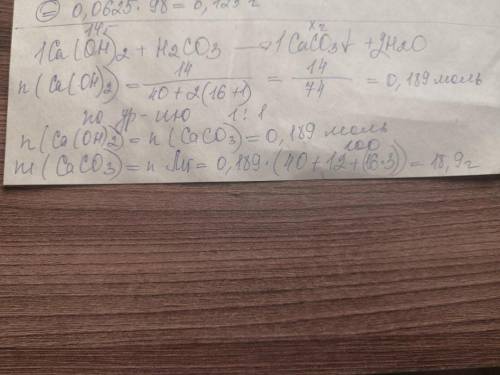 = 0,0625 · 98 = 0,125 г
14г xг
1Ca(OH)2 + H2CO3 → 1CaCO3↓ + 2H2O
n(Ca(OH)2) = 14 / 40+2(16+1) = 14 / 74 = 0,189 моль
по ур-ию 1:1
n(Ca(OH)2) = n(CaCO3) = 0,189 моль
100
m(CaCO3) = n · M = 0,189 · (40+12+(16·3)) = 18,9 г